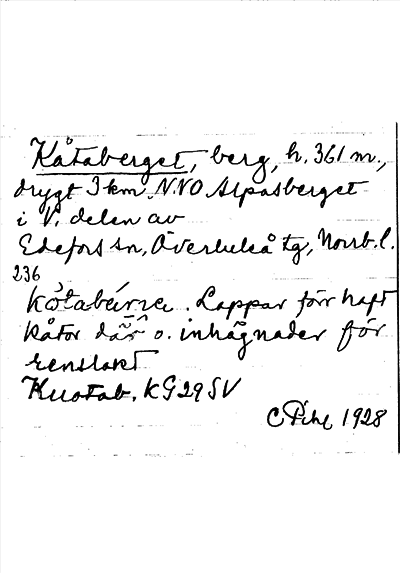 Kåtaberget, berg, h. 361 m.,
drygt 3 km NNO Alpasberget
i V. delen av
Edefors sn, Överluleå tg, Norrb. l.
236
Lappar förr haft
kåtor där o. inhägnader för
renslakt
KG 29 SV
C Pihl 1928